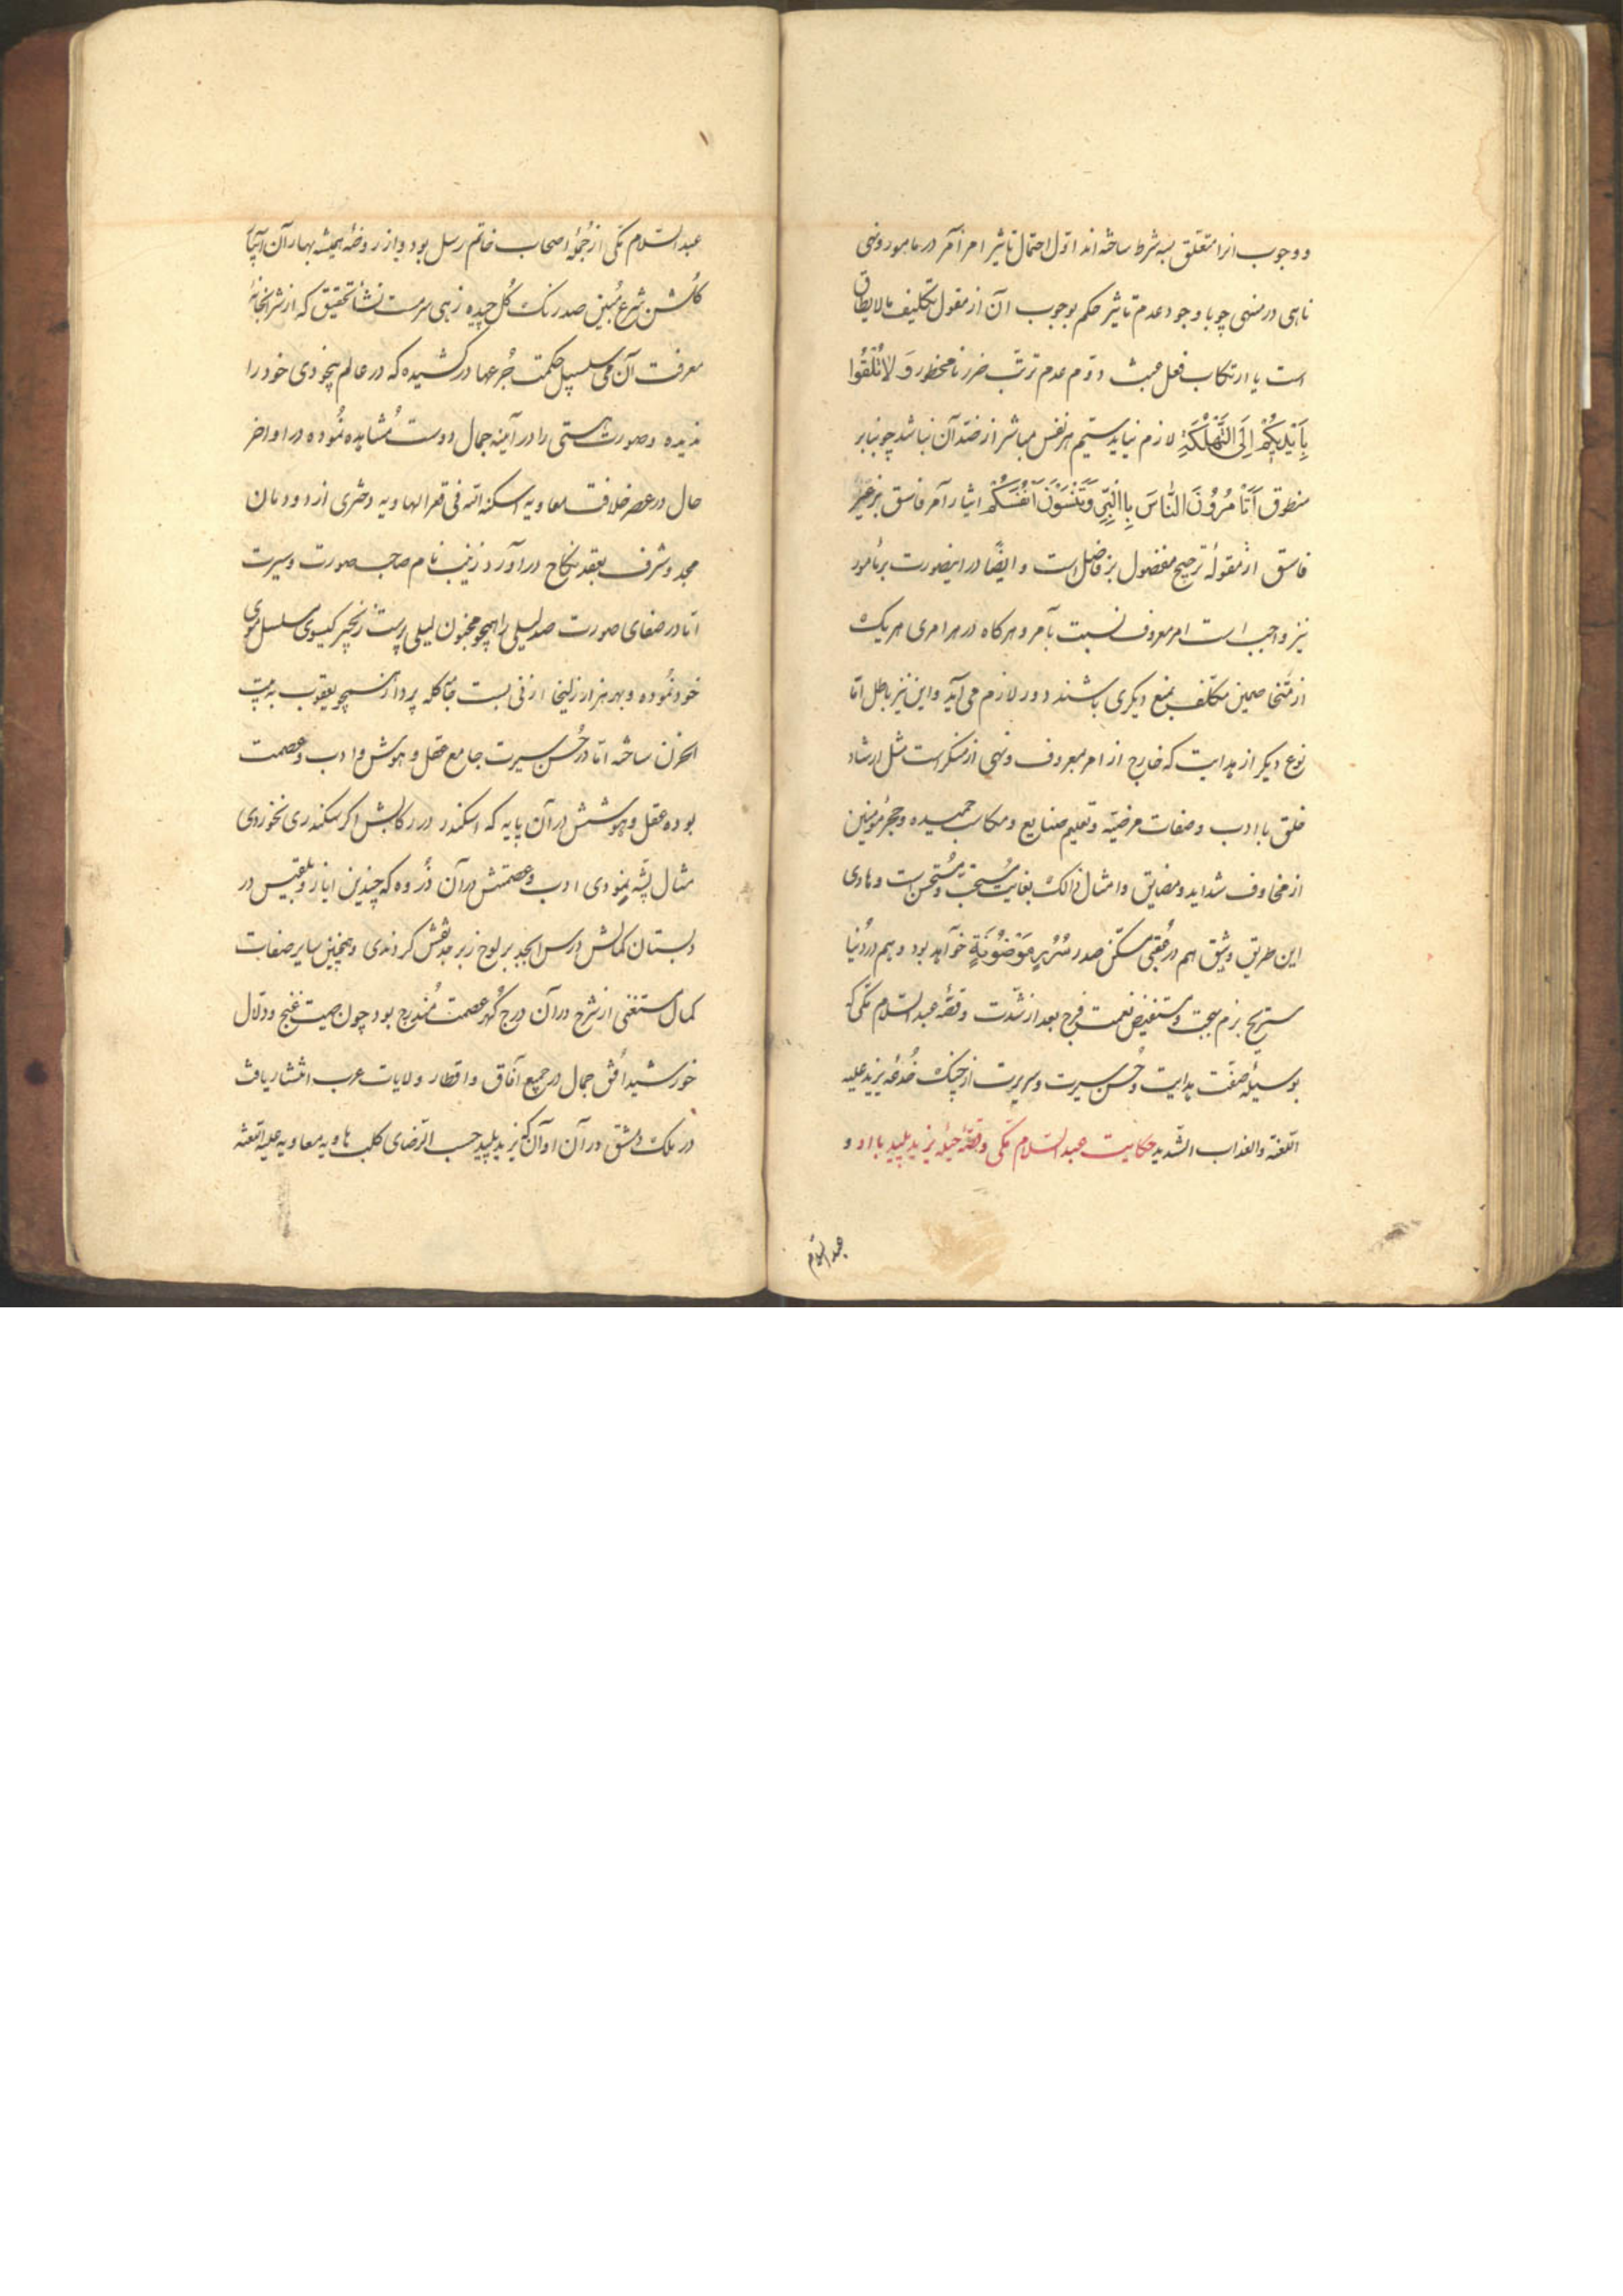 و وجوب انرا متعلق بسه شرط ساخته اند اول احتمال تاثیر امر آمر در مامور و نهی
ناهی در منهی چو با وجود عدم تاثیر حکم بوجوب آن از مقوله تکلیف مالایطاق
است یا ارتکاب فعل عبث دوم عدم ترتب ضرر نا محظور وَ لاٰتُلْقُوا
بِاَیْدِیکُمْ اِلَی التَّهْلُکَةِ لازم نیاید سیم هر نفس مباشر از ضد آن نباشد چو بنابر
منطوق اَتَاْمُرُوُنَ النّٰاسَ بِاالْبِرِّ وَتَنْسَوْنَ اَنْفُسَکُمْ ایثار آمر فاسق بر غیر
فاسق از مقولهٔ ترجیح مفضول بر فاضل است و ایضًا در اینصورت بر مامور
نیز واجب است امر معروف نسبت بآمر و هر کاه در هر امری هر یک
از متخاصمین مکلف بمنع دیکری باشند دور لازم می آید و این نیز باطل اما
نوع دیکر از هدایت که خارج از امر معروف و نهی از منکر است مثل ارشاد
خلق با ادب و صفات مرضیّه و تعلیم صنایع و مکاسب حمیده و حجر مؤمنین
از مخاوف شداید و مضایق و امثال ذالک بغایت مُستحبّ و مُستحسن است و هادی
این طریق وثیق هم در عُقبی متمکّن صدر سُرُرٍ مَوْضُوُنَةٍ خواهد بود و هم در دُنیا
مستریح بزم بهجت و مستفیض نعمت فرج بعد از شدّت و قصّهٔ عبدالسّلام مکّی که
بوسیلهٔ صفت هدایت و حُسن سیرت و سریرت از چنک خُدعهٔ یزید علیه
اللّعنة والعذاب الشّدید حکایت عبدالسّلام مکّی و قصّهٔ حیلهٔ یزید پلید با او و
عبدالسّلام
عبدالسّلام مکّی از جُملهٔ اصحاب خاتم رسل بود و از روضهٔ همیشه بهار آن
کلشن شرع مُبین صد رنک کُل چیده زهی سرمست نشأ تحقیق که از شرابخانهٔ
معرفت آن می سلسبیل حکمت جُرعها در کشیده که در عالم بیخودی خود را
ندیده و صورت هستی را در آینه جمال دوست مُشاهده نمُوده در اواخر
حال در عصر خلافت معاویه اسکنه الله فی قعر الهاویه دختری از دودمان
مجد و شرف بعقد نکاح درآورد زینب نام صاحب صورت و سیرت
اما در صفای صورت صد لیلی را همچو مجنون لیلی پرست زنجیر کیسوی مسلسل موی
خود نمُوده و بهر هزار زلیخا از نی بست مآکله پرداز همچو یعقوب به بیت
الحزن ساخته اما در حُسن سیرت جامع عقل و هوش و ادب و عصمت
بوده عقل و هوشش در آن پایه که اسکندر در رکابش اکر سکندری نخوردی
مثال پشّه بنمودی ادب و عصمتش در آن ذُروه که چندین ایاز و بلقیس در
دبستان کمالش درس ابجد بر لوح زبرجد نقش کردندی و همچنین سایر صفات
کمال مستغنی از شرح در آن درج کُهر عصمت مُندرج بود چون صیت غنج و دلال
خورشید اُفق جمال در جمیع آفاق و اقطار ولایات عرب انتشار یافت
در ملک دمشق در آن اوان که یزید پلید حسب الرّضای کلب هاویه معاویه علیه اللّعنة